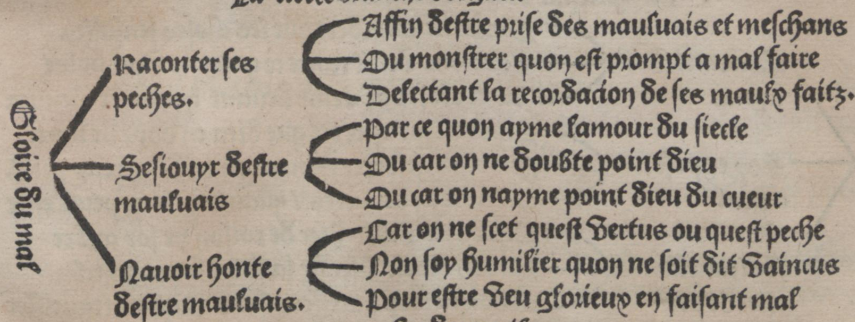 Gloire du mal
Raconter ses
peches.
Affin destre prise des mauluais et meschans
Ou monstrer quon est prompt a mal faire
Delectant la recordacion de ses maulx faitz.
Sesiouyr destre
mauluais
Par ce quon ayme lamour du siecle
Ou car on ne doubte point dieu
Ou car on nayme point dieu du cueur
Nauoir honte
destre mauluais.
Car on ne scet quest vertus ou quest peche
Non soy humilier quon ne soit dit vaincus
Pour estre veu glorieux en faisant mal